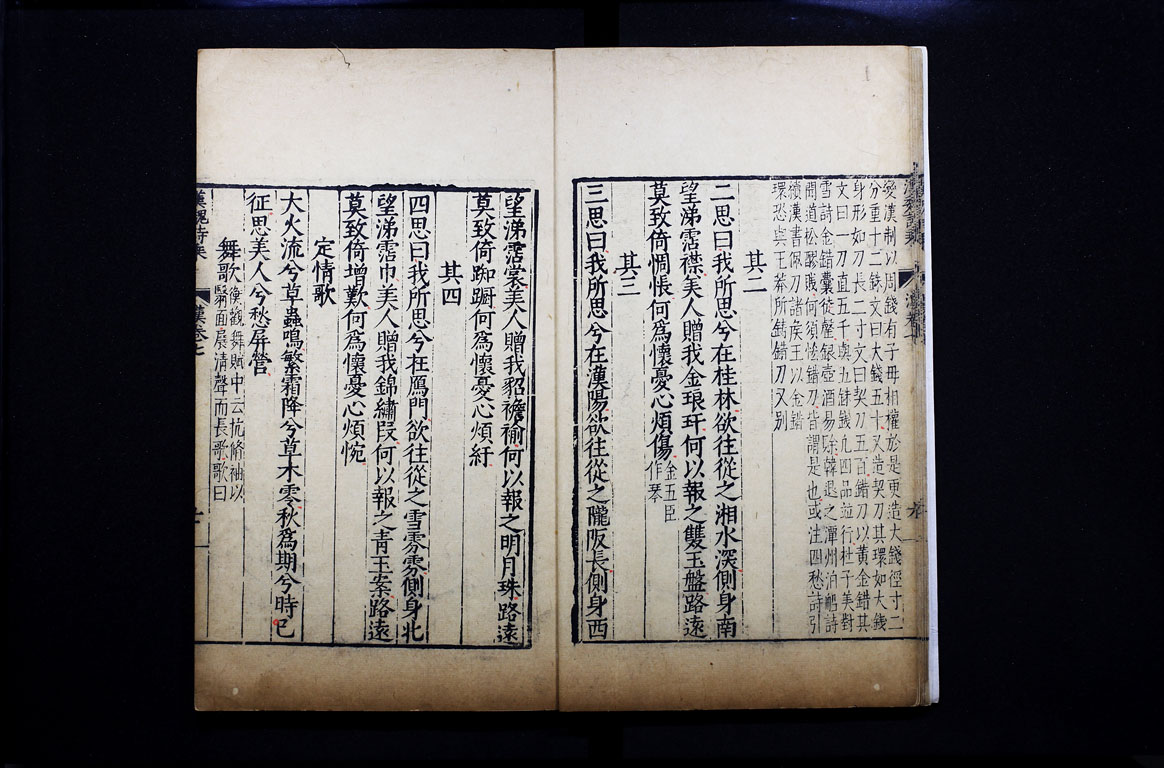 變漢制以周錢有子母相權於是更造大錢徑寸二
分重十二銖文曰大錢五十又造契刀其環如大錢
身形如刀長二寸文曰契刀五百錯刀以黃金錯其
文曰一刀直五千與五銖錢凢四品並行杜子美對
雪詩金錯囊從罄銀壺酒易賖韓退之潭州泊船詩
聞道松醪賤何須恡錯刀皆謂是也或注四愁詩引
續漢書佩刀諸矦王以金錯
環恐與王莽所鑄錯刀又别
其二
二思曰我所思兮在桂林欲往從之湘水深側身南
望涕霑襟美人贈我金琅玕何以報之雙玉盤路遠
莫致倚惆悵何爲懷憂心煩傷金五臣作琴
其三
三思曰我所思兮在漢陽欲往從之隴阪長側身西
望涕霑裳美人贈我貂襜褕何以報之明月珠路遠
莫致倚踟蹰何爲懷憂心煩紆
其四
四思曰我所思兮在鴈門欲往從之雪雰雰側身北
望涕霑巾美人贈我錦繡段何以報之青玉案路遠
莫致倚增歎何爲懷憂心煩惋
定情歌
大火流兮草蟲鳴繁霜降兮草木零秋爲期兮時已
征思美人兮愁屏營
舞歌衡觀舞賦中云抗脩袖以翳面展清聲而長歌歌曰
漢魏詩乘
漢卷七